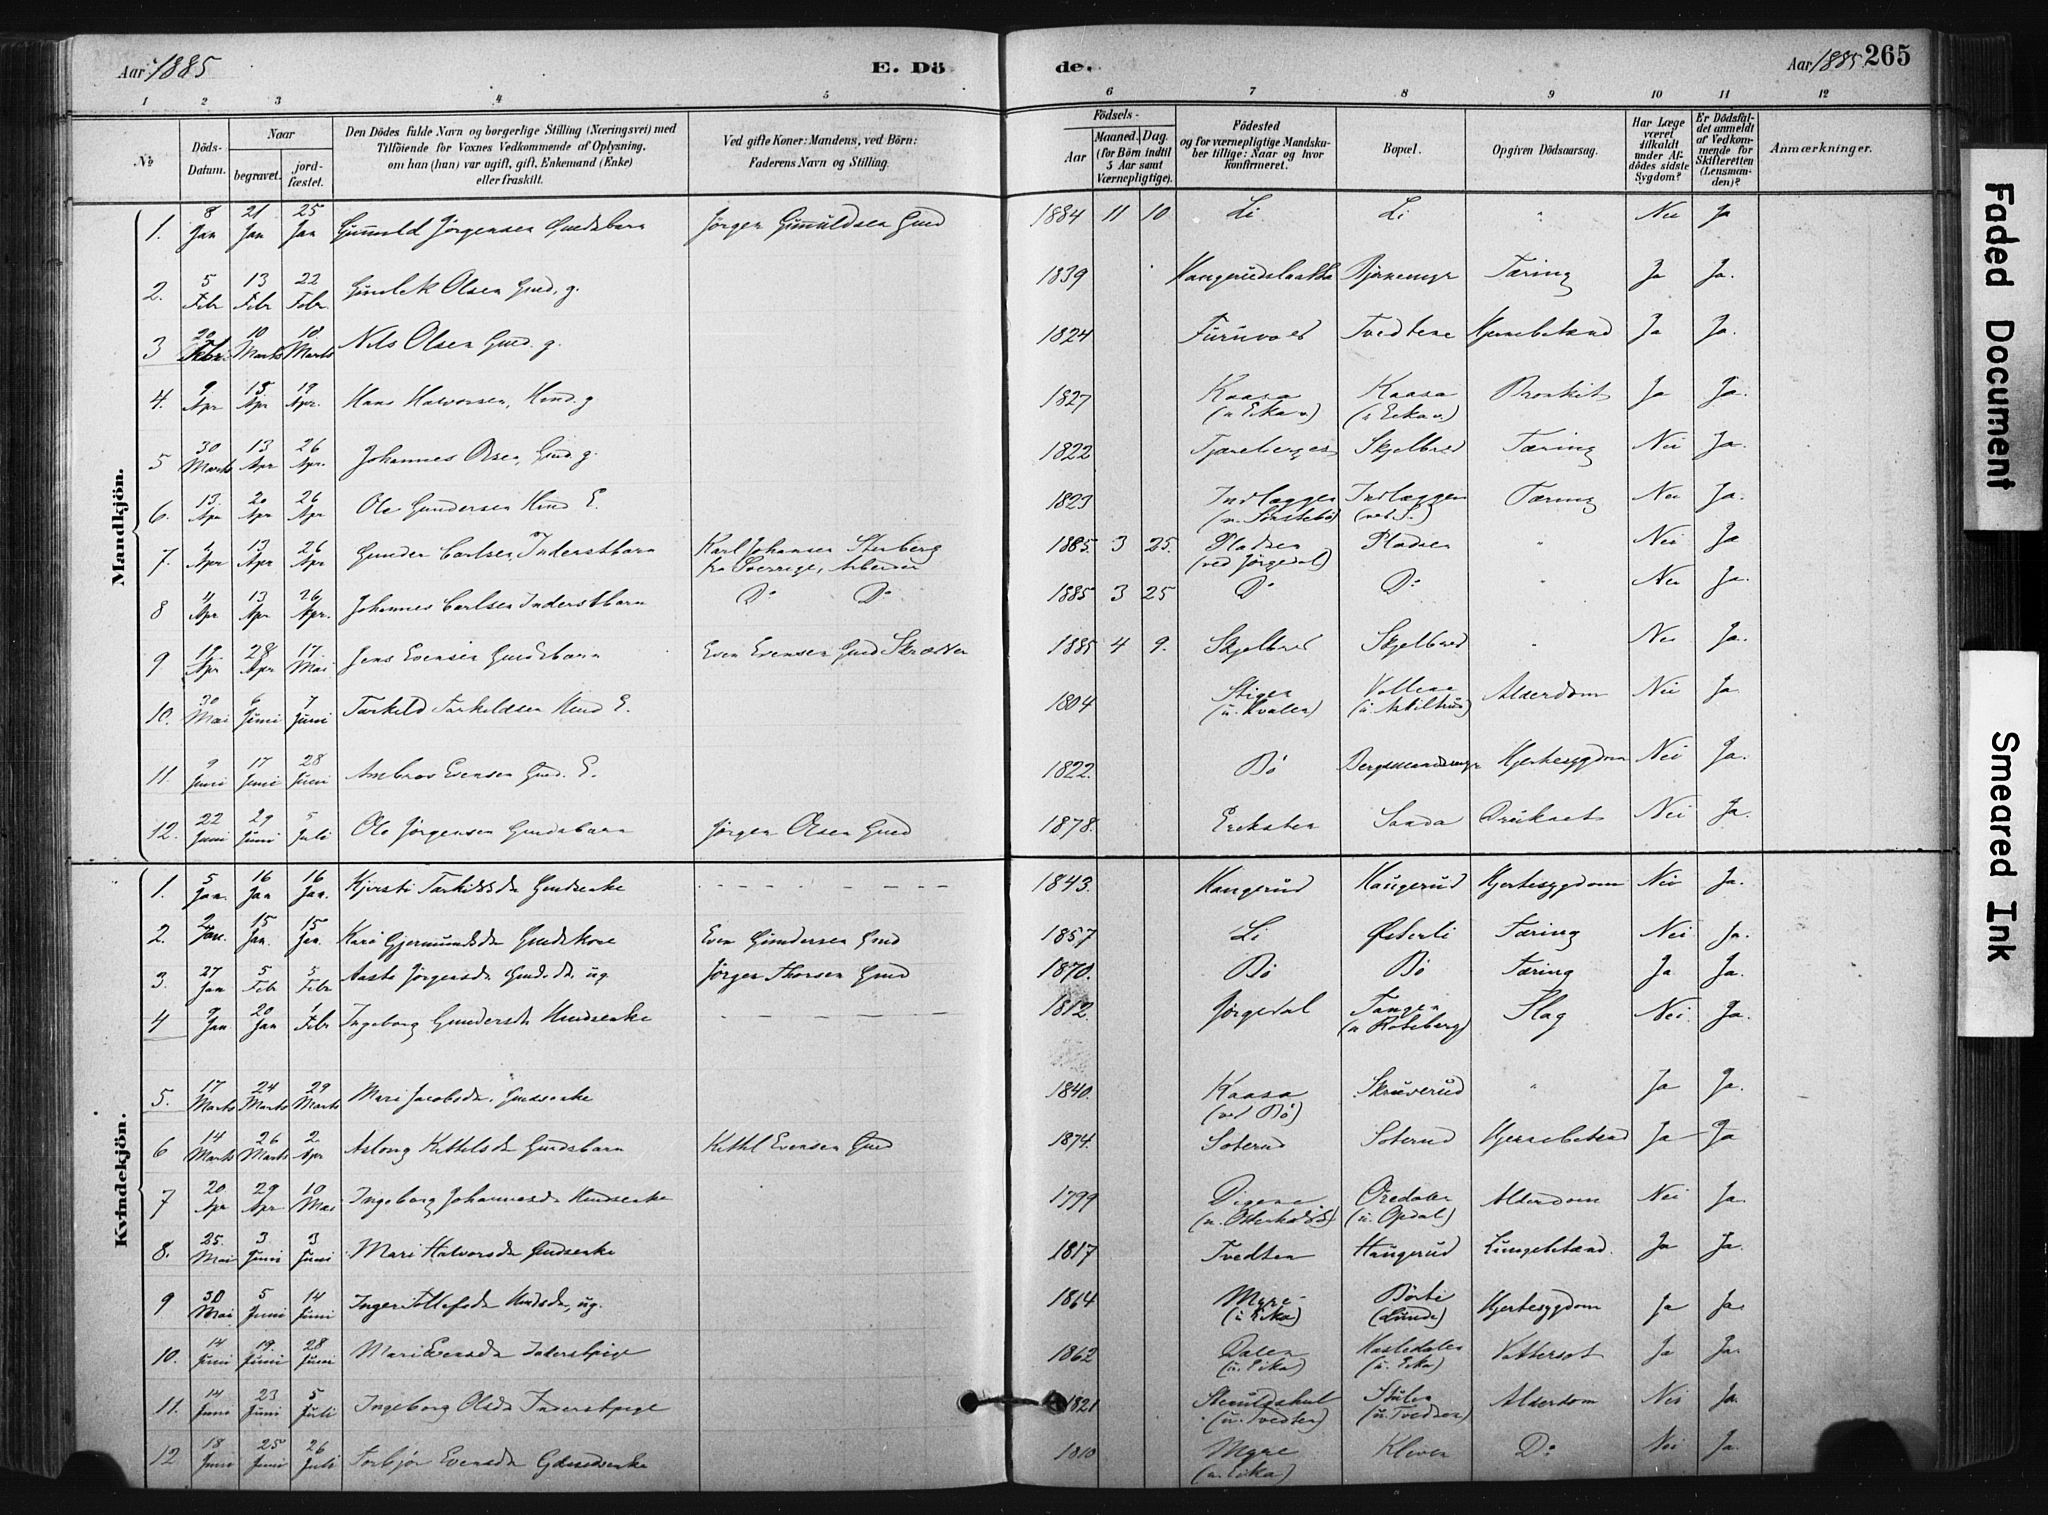 Aar 1885 E. Dö de. Aar 1885. 265
1 2 3 4 5 6 7 8 9 10 11 12
No
Döds-Datum.
Naar
begravet.
jord-fæstet.
Den Dödes fulde Navn og borgerlige Stilling (Næringsvei) med
Tilföiende for Voxnes Vedkommende af Oplysning,
om han (hun) var ugift, gift, Enkemand (Enke)
eller fraskilt.
Ved gifte Koner: Mandens, ved Börn:
Faderens Navn og Stilling.
Födsels-
Aar
Maaned. Dag.
(for Börn indtil
5 Aar samt
Værnepligtige).
Födested
og for værnepligtige Mandska-
ber tillige: Naar og hvor
konfirmeret.
Bopæl.
Opgiven Dödsaarsag.
Har Læge
været
tilkaldt
under Af-
dödes sidste
Sygdom?
Er Dödsfal-
det anmeldt
af Vedkom-
mende for
Skifteretten
(Lensman-
den)?
Anmærkninger.
Mandkjön.
1. 8 Jan 21 Jan 25 Jan Jörgensen Gmdsbarn Jörgen Gmd 1884 11 10 Li Li " Nei Ja
2. 5 Febr 13 Febr 22 Febr. Olsen Gmd. g. 1839 Tæring Ja Ja.
3 20 Febr. 10 Marts 10 Marts Nils Olsen Gmd. g. 1824 Tvedtene Hjernebetænd Ja Ja.
4. 9 Apr 15 Apr 19 Apr. Hans Halvorsen, Hmd. g 1827 Kaasa (u Eika) Kaasa (u Eika) Bronkit Ja Ja.
5 30 Marts 13 Apr 26 Apr. Johannes Olsen, Gmd. g. 1822 Skjelbred Tæring Nei Ja.
6. 13. Apr 20 Apr 26 Apr Ole Gundersen Hmd E. 1823 Indlæggen Indlæggen (ved S.) Tæring Nei Ja.
7. 4 Apr 13 Apr 26 Apr Gunder Carlsen, Inderstbarn Karl Johansen Stenberg fra Sverrige, Arbeider 1885. 3 25. Pladsen (ved Jörgedal) Pladsen " Nei Ja
8 4 Apr 13 Apr 26 Apr. Johannes Carlsen Inderstbarn Do Do 1885 3 25 Do Do " Nei Ja.
9 19 Apr 28 Apr 17. Mai Jens Evensen Gmdsbarn Even Evensen Gmd Skrædder 1885 4 9. Skjelbred Skjelbred " Nei Ja.
10. 30 Mai 6 Juni 7 Juni Tarkeld Tarkeldsen Hmd E. 1804 Stigen (u. Kvalen) Alderdom Nei Ja.
11. 9 Juni 17 Juni 28 Juni Ambros Evensen Gmd. E. 1822. Bö Hjertesygdom Nei Ja.
12. 22 Juni 29 Juni 5 Juli Ole Jörgensen Gmdsbarn Jörgen Olsen Gmd 1878. Eriksten Sanda Druknet Nei Ja.
Kvindekjön.
1. 5 Jan. 16 Jan 16 Jan. Kjersti Gmdsenke 1843. Haugerud Haugerud Hjertesygdom Nei Ja.
2. 2 Jan. 15 Jan. 15 Jan. Kari Gjermundsdr Gmdskone Even Gundersen Gmd 1857 Li Østerli Tæring Nei Ja.
3. 27 Jan 5 Febr 5 Febr Aaste Jörgensdr Gmds.dr. ug Jörgen Thorsen Gmd 1870. Bö Bö Tæring Ja Ja.
4 9 Jan 20 Jan 1 Febr Ingeborg Gundersdr Hmdsenke 1812. Jörgedal Tangen (u Roteberg) Slag Nei. Ja.
5. 17 Marts 24 Marts 29 Marts Mari Jacobsdr. Gmdsenke 1840. Kaasa (ved Bö) Skruverud " Ja Ja.
6 14 Marts 26 Marts 2. Apr Asloug Kettelsdr Gmdsbarn Kettil Evensen Gmd 1874. Soterud Soterud Hjernebetænd Ja Ja
7 20 Apr 29 Apr 10 Mai Ingeborg Johannesdr Hmdsenke 1799 Digene Oredalen (u. Opdal) Alderdom Nei Ja.
8. 25. Mai 3. Juni 3 Juni Mari Halvorsdr Gmdsenke 1817 Tvedten Haugerud Lungebetænd. Ja Ja.
9 30 Mai 5 Juni 14 Juni Inger Tollefsdr Hmdsdr, ug. 1864 Myre (u Eika) Börti (Lunde) Hjertesygdom Ja Ja.
10. 14 Juni 19. Juni 28 Juni Mari Evensdr Inderstpige 1862 Dalen (u. Eika) Hasledalen (u. Eika) Vattersot Ja Ja.
11. 14 Juni 23 Juni 5 Juli Ingeborg Olsdr Inderstpige 1821 (u. Tvedten) Stulen (u. Tvedten) Alderdom Nei Ja.
12 18 Juni 25 Juni 26 Juli Torbjör Evensdr Gdmdsenke 1810 Myre (u. Eika) Kleven Do Nei Ja.
Faded Document
Smeared Ink